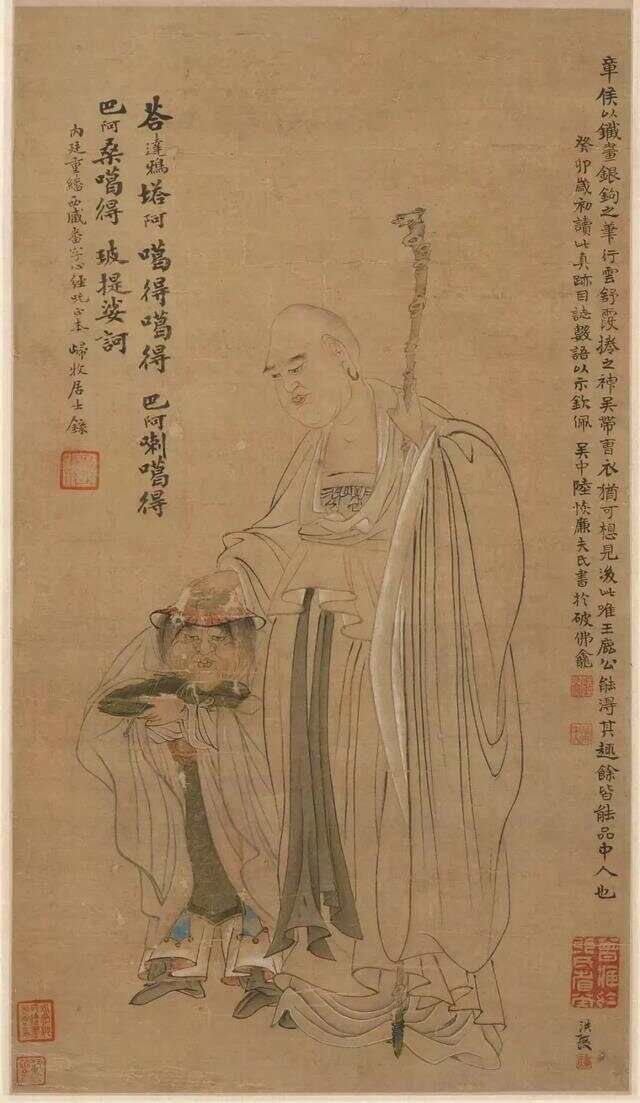 章侯以鐵畫銀鉤之筆行雲舒霞捲之神吳帶曹衣猶可想見後此唯王鹿公能得其趣餘皆能品中人也
癸卯歲初讀此真跡因誌數語以示欽佩 吳中陸恢廉夫氏書於破佛龕
洪綬
荅達鴉塔阿 噶得噶得 巴阿喇噶得
巴阿桑噶得 玻提娑訶
內廷重繙西藏番字心經咒正本 歸牧居士錄